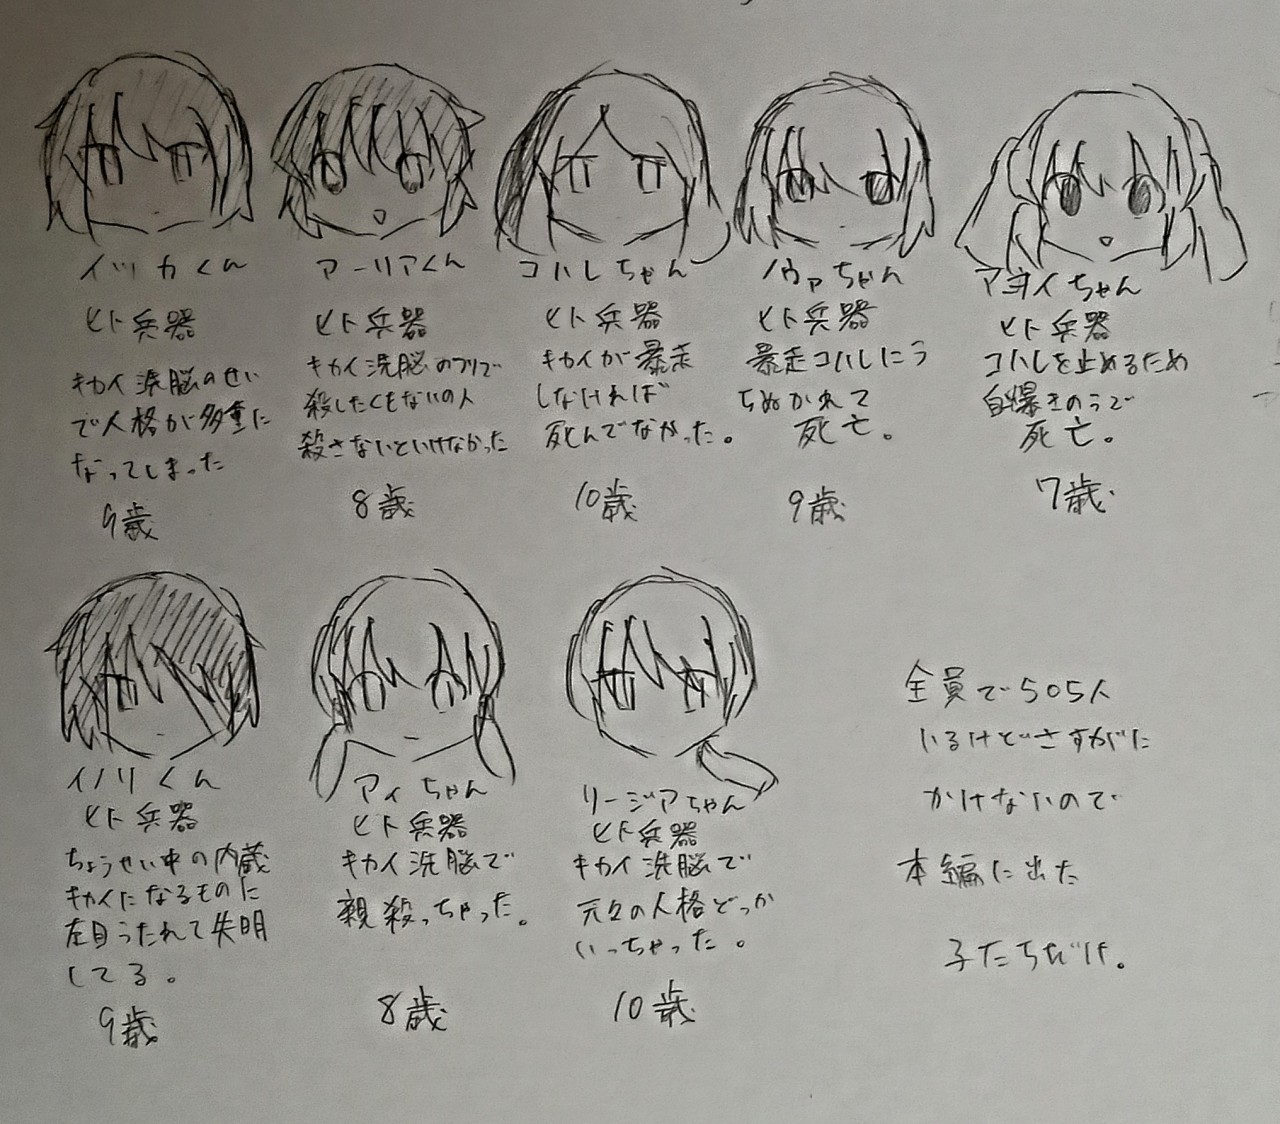 イツカくん
ヒト兵器
キカイ洗脳のせい
で人格が多重に
なってしまった
9歳
アーリアくん
ヒト兵器
キカイ洗脳のフリで
殺したくもないの人
殺さないといけなかった
8歳
コハレちゃん
ヒト兵器
キカイが暴走
しなければ
死んでなかった。
10歳
ノヴァちゃん
ヒト兵器
暴走コハレにう
ちぬかれて
死亡。
9歳
アヨイちゃん
ヒト兵器
コハレを止めるため
自爆きのうで
死亡。
7歳
イノリくん
ヒト兵器
ちょうせい中の内蔵
キカイになるものに
左目うたれて失明
してる。
9歳
アィちゃん
ヒト兵器
キカイ洗脳で
親殺っちゃった。
8歳
リージアちゃん
ヒト兵器
キカイ洗脳で
元々の人格どっか
いっちゃった。
10歳
全員で505人
いるけどさすがに
かけないので
本編に出た
子たちだけ。